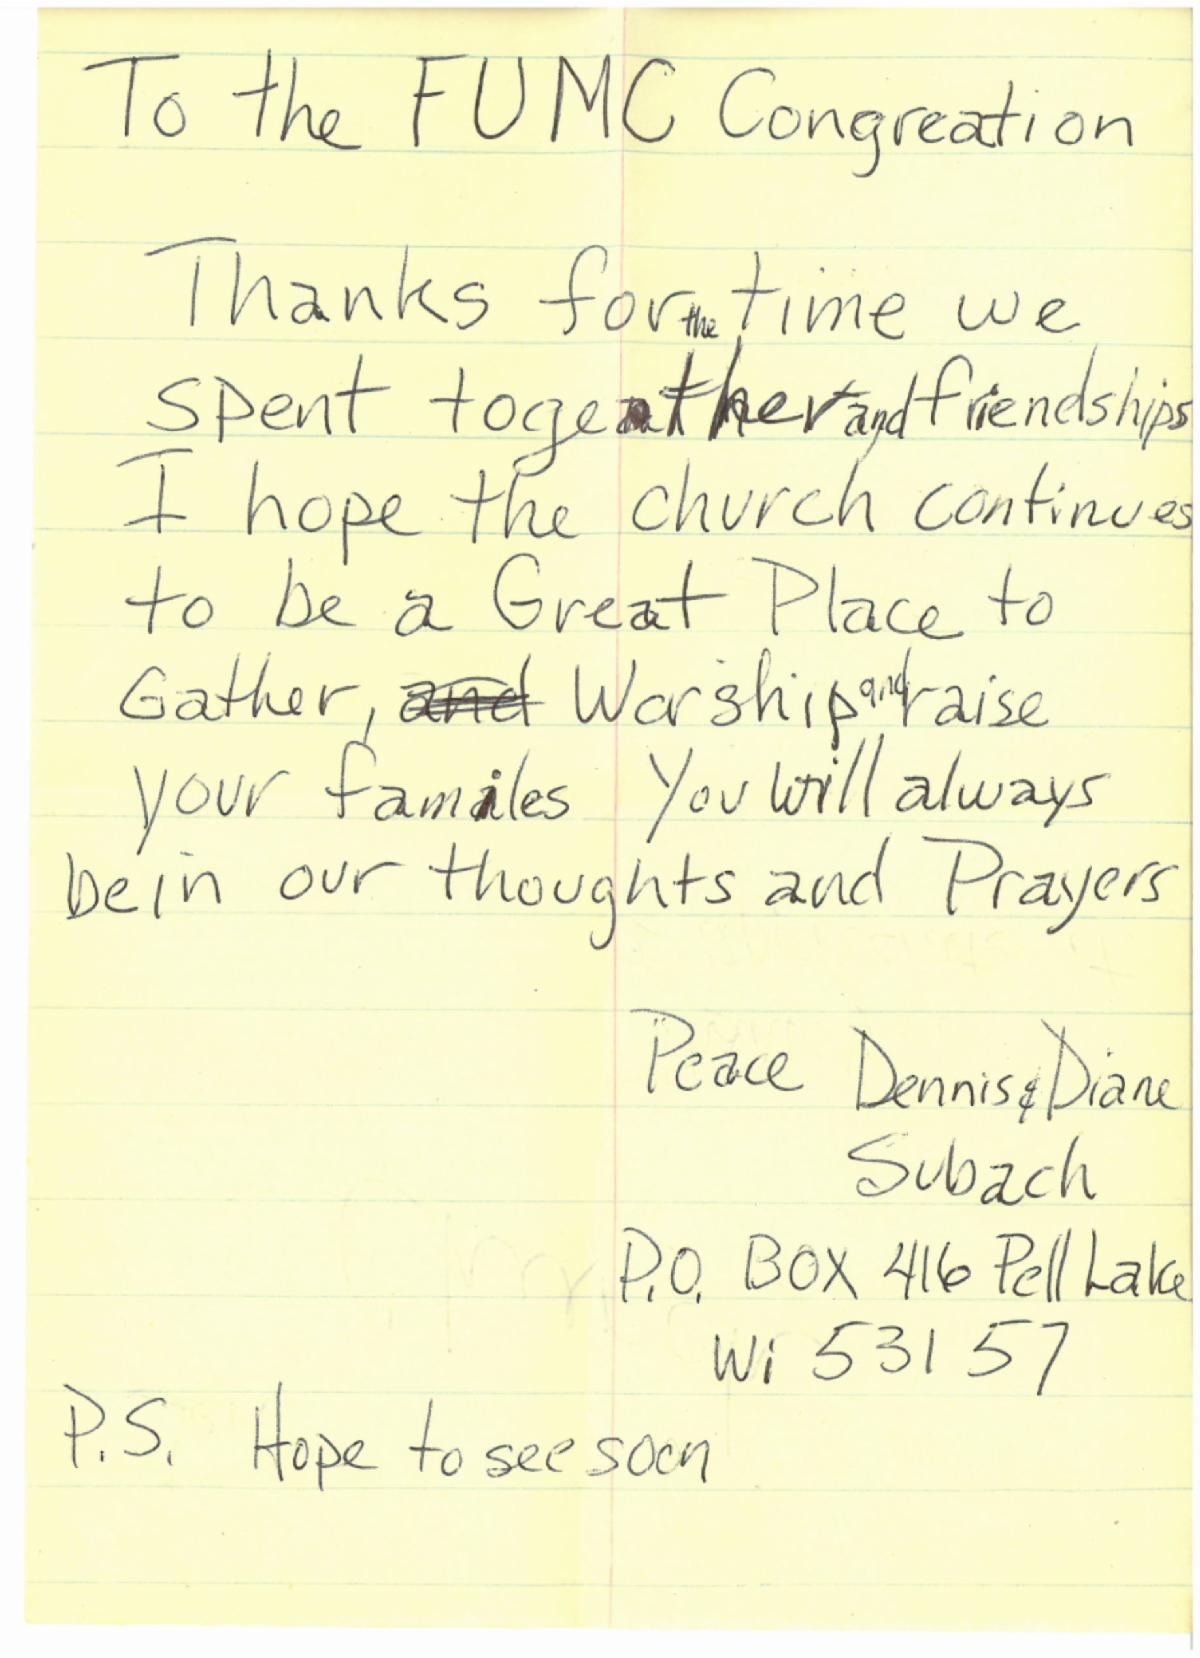 To the FUMC Congreation
Thanks for the time we
spent together and friendships
I hope the church continues
to be a Great Place to
Gather, and Worship and raise
your familes You will always
be in our thoughts and Prayers
Peace Dennis & Diane
Subach
P.O. BOX 416 Pell Lake
Wi 53157
P.S. Hope to see soon